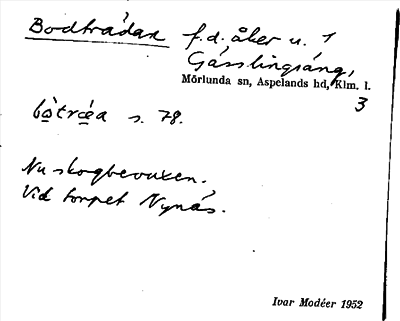 Bodträdan f.d. åker u. 1
Gässlingsäng,
Mörlunda sn, Aspelands hd, Klm. l.
3
bòtrœ́a s. 78.
Nu skogbevuxen.
Vid torpet Nynäs.
Ivar Modéer 1952